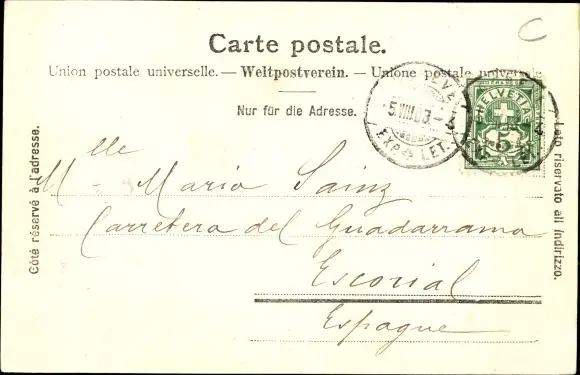 C
Carte postale.
Union postale universelle. — Weltpostverein. — Unione postale universale
Nur für die Adresse.
HELVETIA
5
EXP. LET.
Côté réservé à l'adresse.
Lato riservato all indirizzo.
Mlle Maria Sainz
Carretera del Guadarrama
Escorial
Espagne